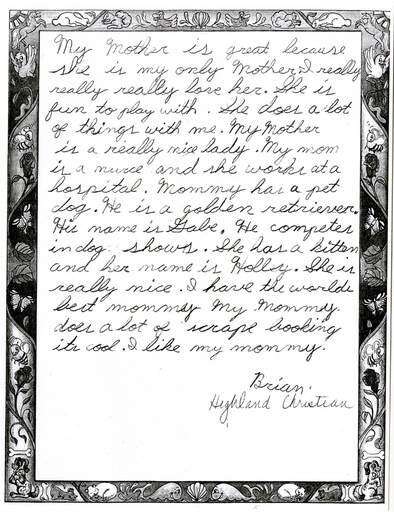 My Mother is great because
she is my only Mother. I really
really really love her. She is
fun to play with. She does a lot
of things with me. My Mother
is a really nice lady. My mom
is a nurse and she works at a
hospital. Mommy has a pet
dog. He is a golden retriever.
His name is Gabe. He competes
in dog shows. She has a kitten
and her name is Holly. She is
really nice. I have the worlds
best mommy My Mommy
does a lot of scrape booking
its cool. I like my mommy.
Brian.
Highland Christian